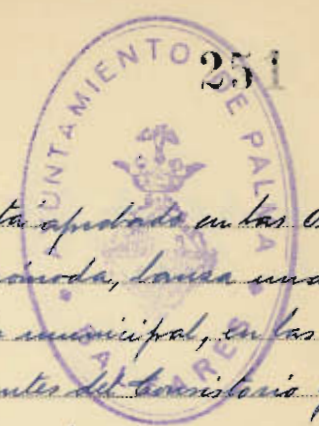 251
AYUNTAMIENTO DE PALMA
BALEARES
ta aprobado en las O
cómoda, lanza una
municipal, en las
ntes del Consistorio